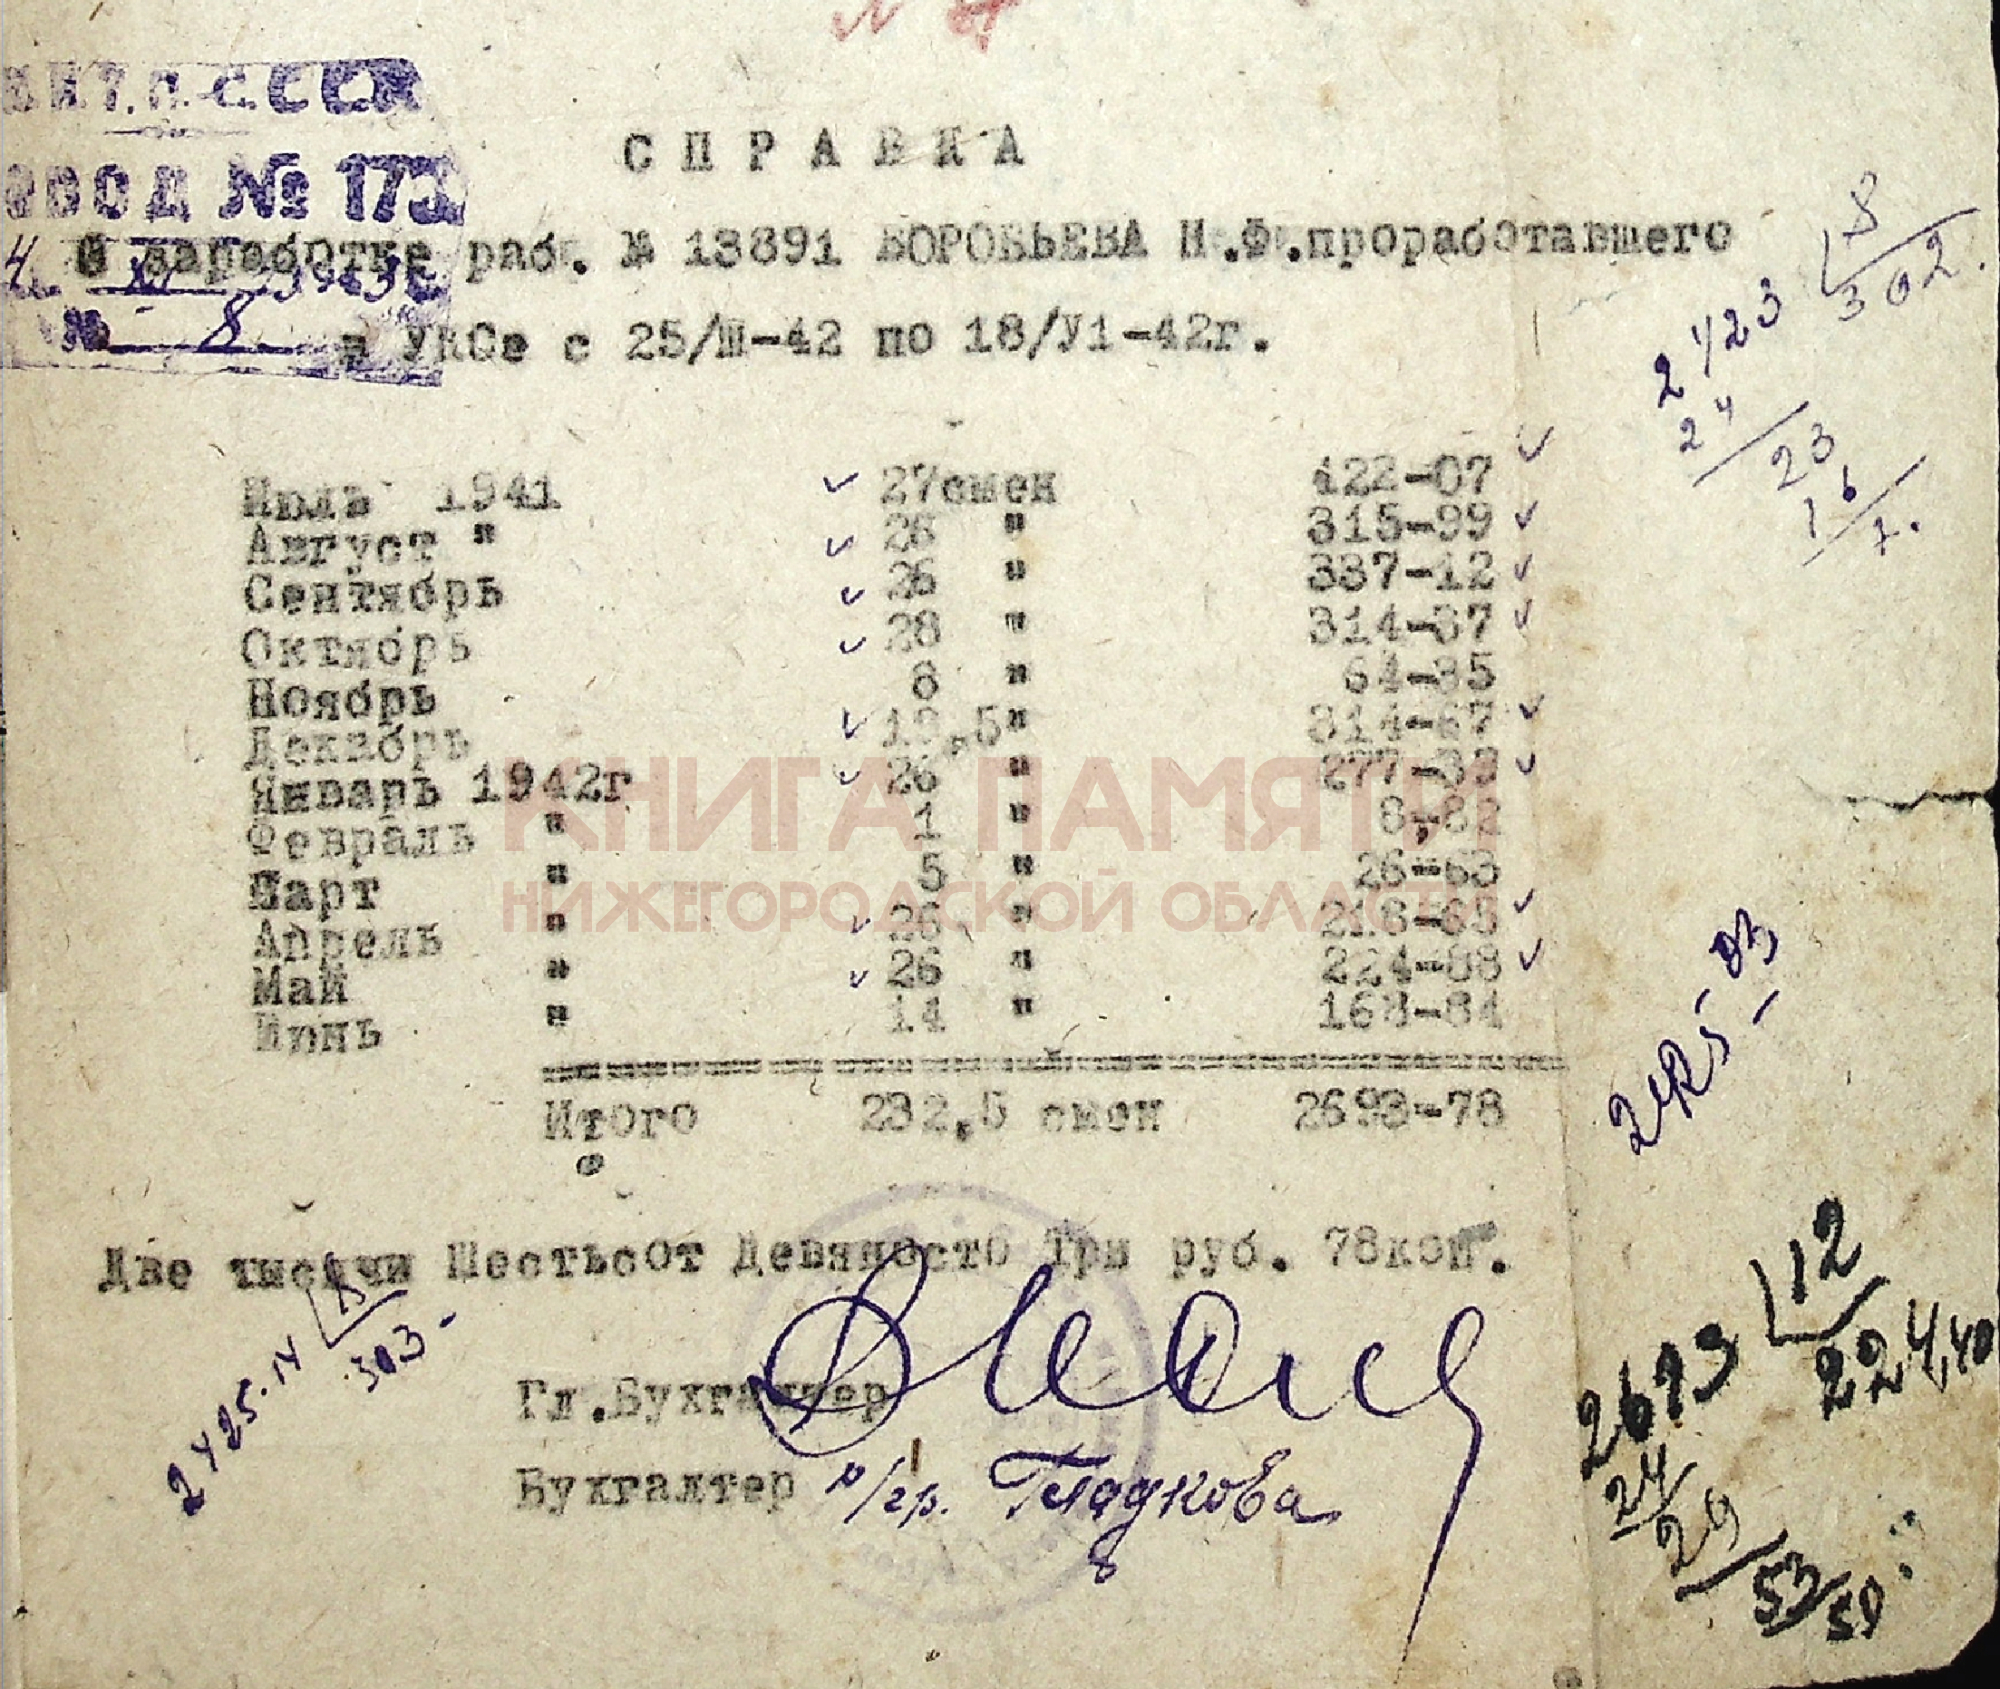 С П Р А В К А
ЗАВОД № 173
О заработке раб. № 13891 ВОРОБЬЕВА Н.Ф.проработавшего
№ 8
в УКСе с 25/Ш-42 по 18/У1-42г.
8
2423 302.
24
23
16
7.
Июль 1941 27смен 422-07
Август " 26 " 315-99
Сентябрь 26 " 337-12
Октябрь 28 " 314-37
Ноябрь 8 " 64-35
Декабрь 19,5" 314-67
Январь 1942г 26 " 277-33
Февраль " 1 " 8-82
Март " 5 " 26-63
Апрель " 26 " 218-65
Май " 26 " 224-88
Июнь " 14 " 168-84
Итого 232,5 смен 2693-78
КНИГА ПАМЯТИ
НИЖЕГОРОДСКОЙ ОБЛАСТИ
2425-03
Две тысячи Шестьсот Девяносто Три руб. 78коп.
2425.14 8
303-
Гл.Бухгалтер
Бухгалтер н/гр. Гладкова
8
2693 12
224,40
24
29
53
50